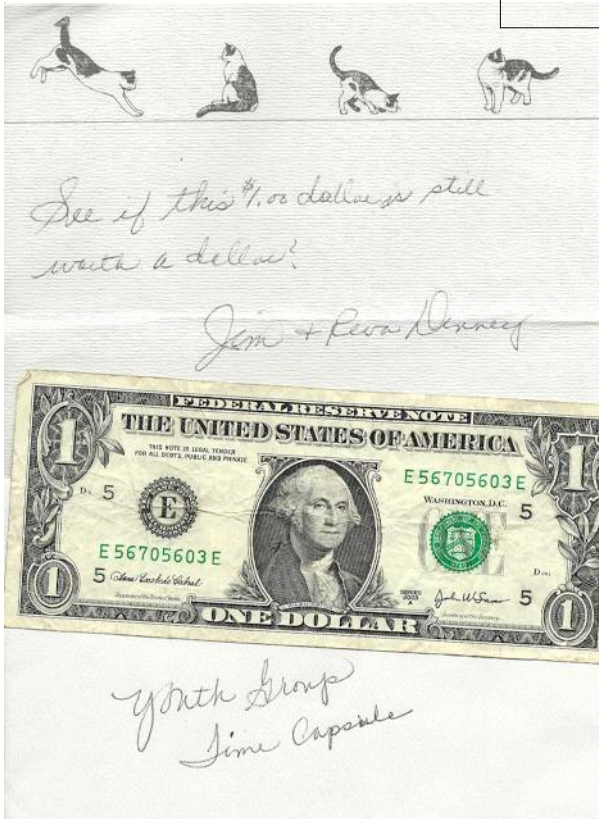 See if this $1.00 dollar is still
worth a dollar?
Jim + Reva Denney
FEDERAL RESERVE NOTE
THE UNITED STATES OF AMERICA
THIS NOTE IS LEGAL TENDER
FOR ALL DEBTS, PUBLIC AND PRIVATE
E 56705603 E
WASHINGTON, D.C.
1
1
5
5
E
ONE
E 56705603 E
5
5
SERIES
2003
A
1
1
ONE DOLLAR
Youth Group
Time Capsule